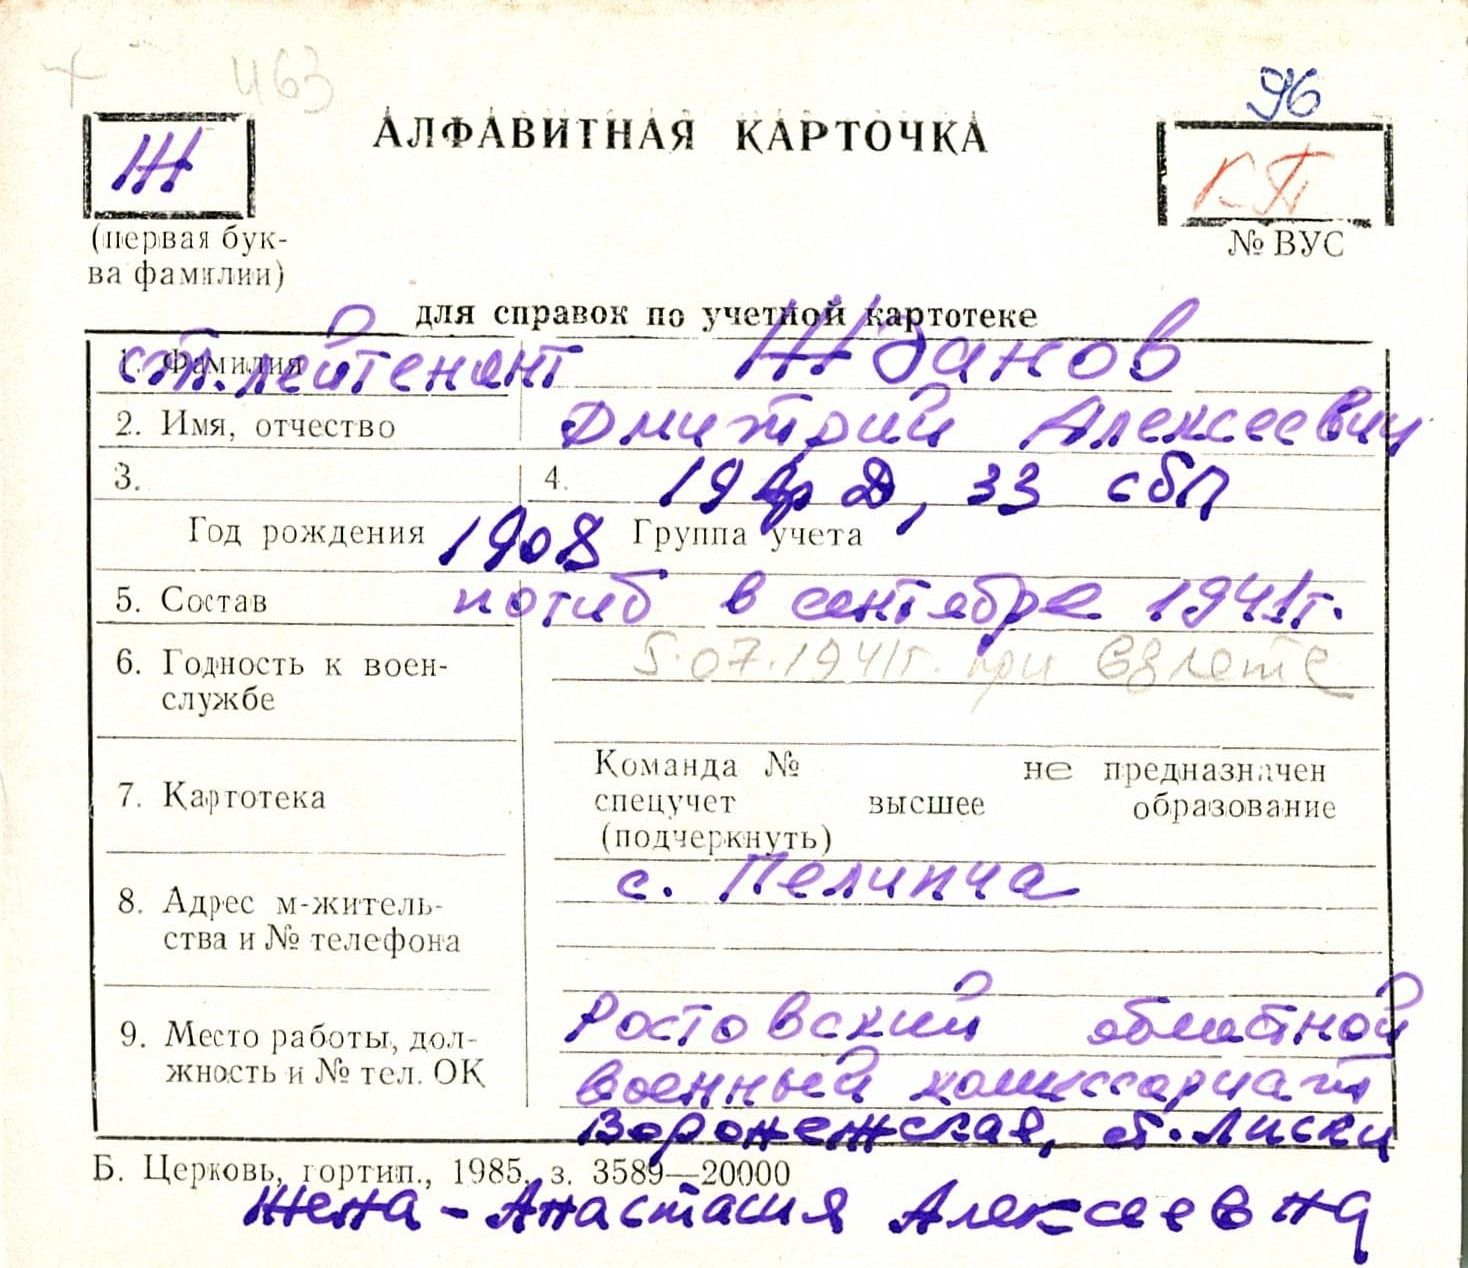 и63
96
Ж
АЛФАВИТНАЯ КАРТОЧКА
КП
(первая бук-
ва фамилии)
№ ВУС
для справок по учетной картотеке
1. Фамилия
ст. лейтенант Жданов
2. Имя, отчество Дмитрий Алексеевич
3. 4. 19 Д, 33 сбп
Год рождения 1908 Группа учета
5. Состав погиб в сентябре 1941г.
6. Годность к воен-
службе
5.07.1941г. при взлете
7. Картотека
Команда № не предназначен
спецучет высшее образование
(подчеркнуть)
8. Адрес м-житель-
ства и № телефона
с. Пелипча
9. Место работы, дол-
жность и № тел. ОК
Ростовский областной
военный комиссариат
Воронежская, б. Лиски
Б. Церковь, гортип., 1985, з. 3589—20000
жена - Анастасия Алексеевна